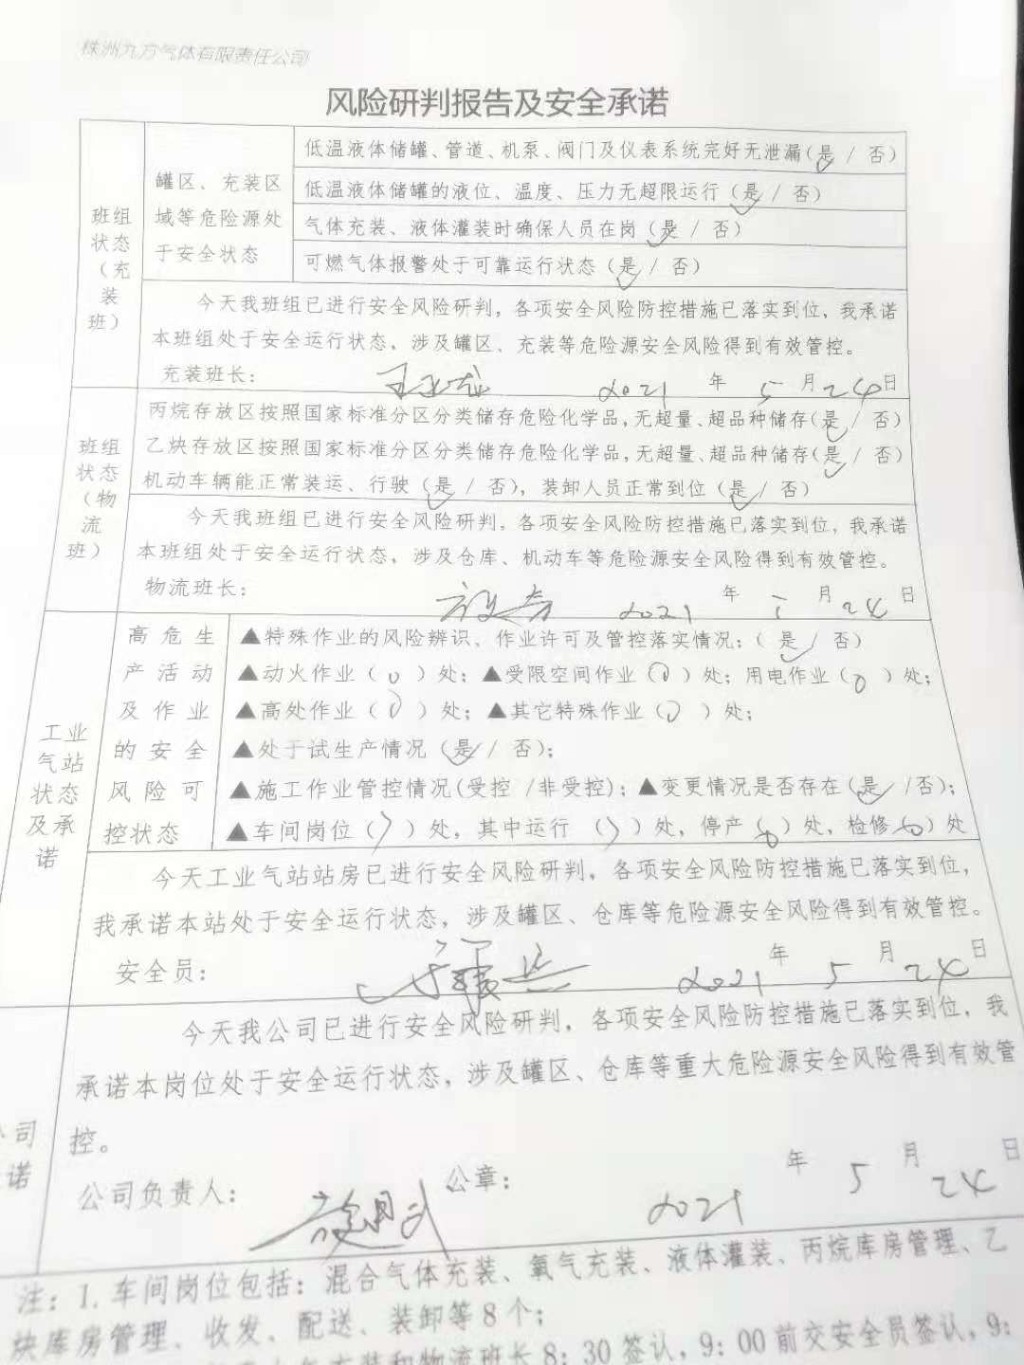 株洲九方气体有限责任公司
风险研判报告及安全承诺
班组状态（充装班）
罐区、充装区域等危险源处于安全状态
低温液体储罐、管道、机泵、阀门及仪表系统完好无泄漏（是 / 否）
低温液体储罐的液位、温度、压力无超限运行（是 / 否）
气体充装、液体灌装时确保人员在岗（是 / 否）
可燃气体报警处于可靠运行状态（是 / 否）
今天我班组已进行安全风险研判，各项安全风险防控措施已落实到位，我承诺
本班组处于安全运行状态，涉及罐区、充装等危险源安全风险得到有效管控。
充装班长： 2021 年 5 月 24 日
班组状态（物流班）
丙烷存放区按照国家标准分区分类储存危险化学品，无超量、超品种储存（是 / 否）
乙炔存放区按照国家标准分区分类储存危险化学品，无超量、超品种储存（是 / 否）
机动车辆能正常装运、行驶（是 / 否），装卸人员正常到位（是 / 否）
今天我班组已进行安全风险研判，各项安全风险防控措施已落实到位，我承诺
本班组处于安全运行状态，涉及仓库、机动车等危险源安全风险得到有效管控。
物流班长： 2021 年 月 24 日
工业气站状态及承诺
高危生产活动及作业的安全风险可控状态
▲特殊作业的风险辨识、作业许可及管控落实情况：（ 是 / 否）
▲动火作业（ 0 ）处；▲受限空间作业（ 0 ）处；用电作业（ 0 ）处；
▲高处作业（ 0 ）处；▲其它特殊作业（ 0 ）处；
▲处于试生产情况（是 / 否）；
▲施工作业管控情况(受控 /非受控)；▲变更情况是否存在（是 /否）；
▲车间岗位（ ）处，其中运行 （ ）处，停产（ 0 ）处，检修（ 0 ）处
今天工业气站站房已进行安全风险研判，各项安全风险防控措施已落实到位，
我承诺本站处于安全运行状态，涉及罐区、仓库等危险源安全风险得到有效管控。
安全员： 2021 年 5 月 24 日
司
诺
今天我公司已进行安全风险研判，各项安全风险防控措施已落实到位，我
承诺本岗位处于安全运行状态，涉及罐区、仓库等重大危险源安全风险得到有效管
控。
公司负责人： 公章： 2021 年 5 月 24 日
注：1.车间岗位包括：混合气体充装、氧气充装、液体灌装、丙烷库房管理、乙
炔库房管理、收发、配送、装卸等8个；
充装和物流班长8：30签认，9：00前交安全员签认，9：